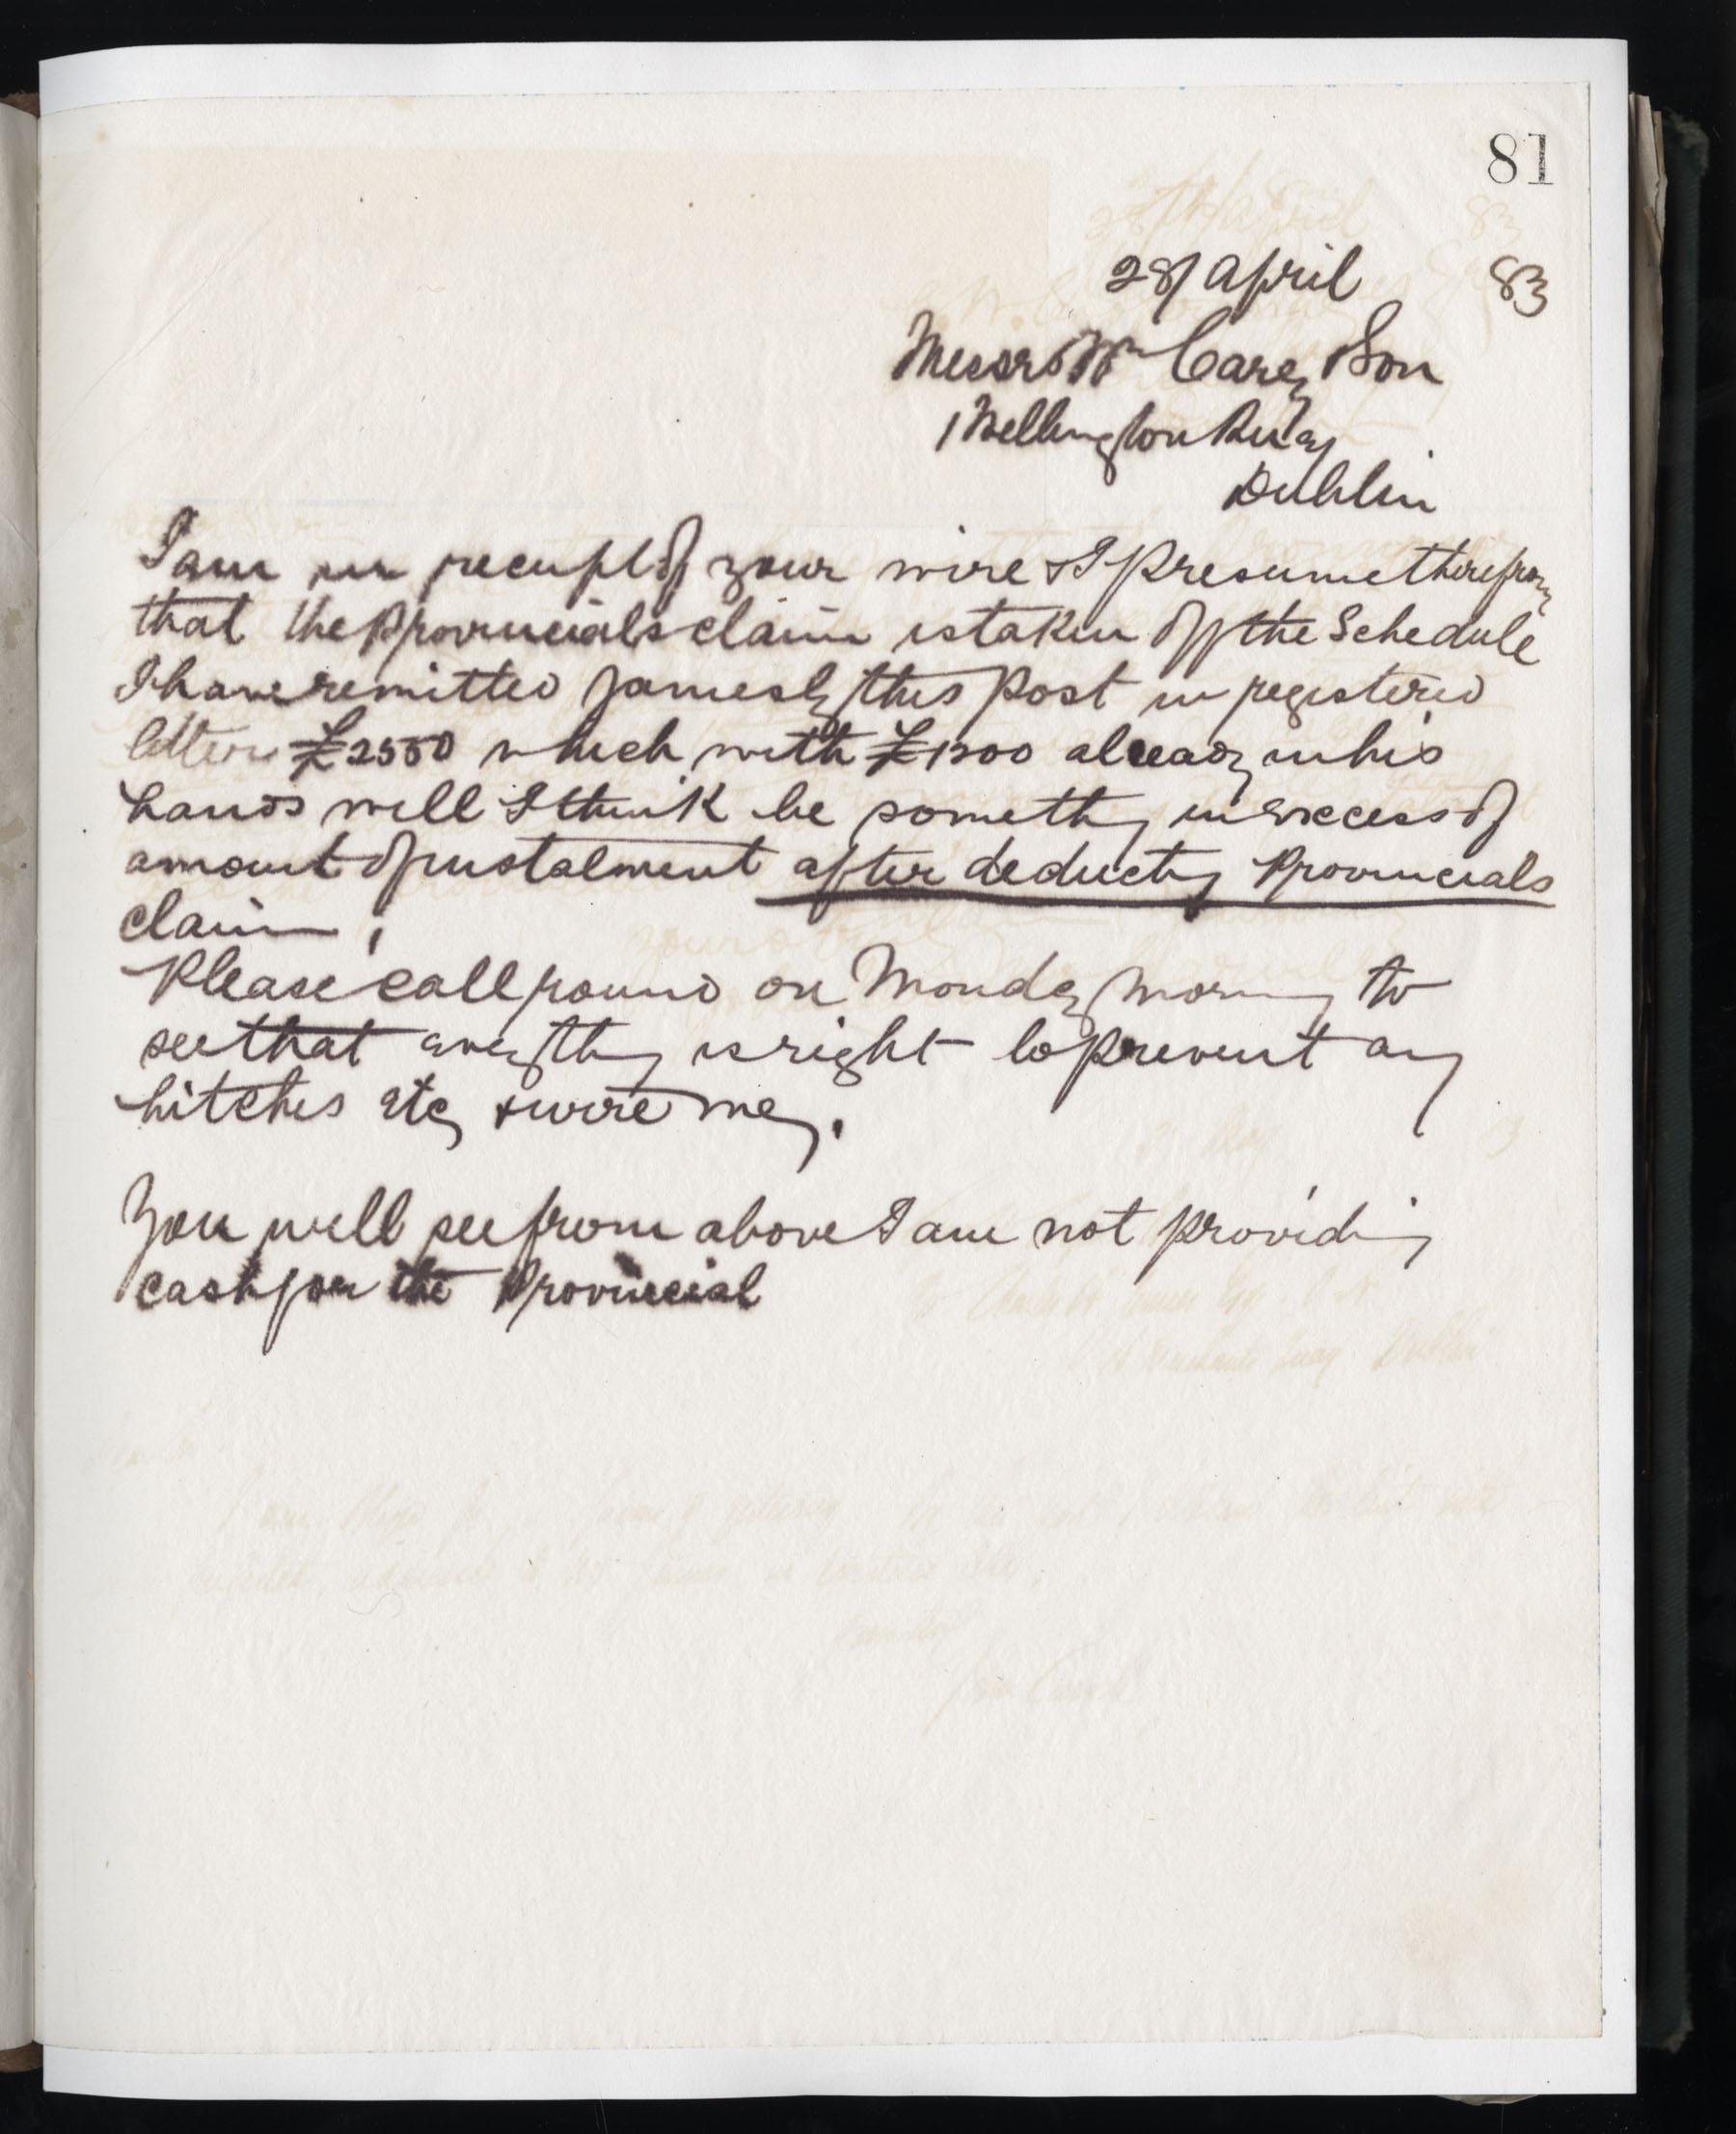 81
28/ April 83
Messrs Wm Carey & Son
1 Wellington Quay
Dublin
I am in receipt of your wire & I presume therefrom
that the Provincials claim is taken off the Schedule
I have remitted James by this post in registered
letter £2550 which with £1200 already in his
hands will I think be something in excess of
amount of instalment after deducting Provincials
claim.
Please call round on Monday morning to
see that everything is right to prevent any
hitches etc & wire me.
You will see from above I am not providing
cash for the Provincial